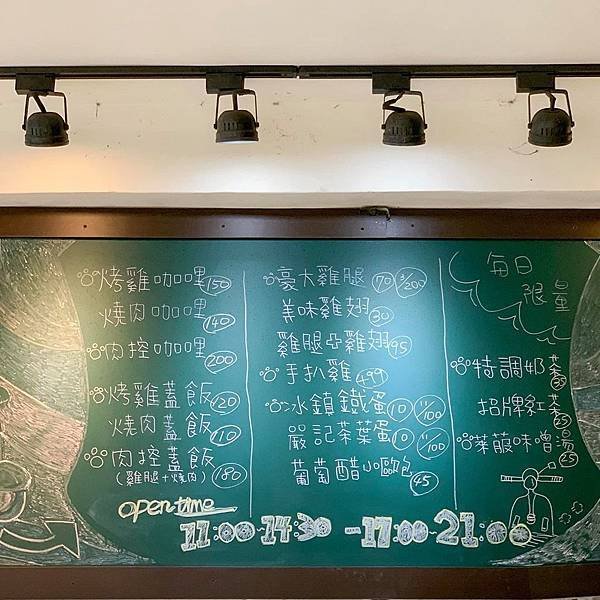 烤雞咖哩 150
燒肉咖哩 140
肉控咖哩 200
烤雞蓋飯 120
燒肉蓋飯 110
肉控蓋飯 180
(雞腿+燒肉)
豪大雞腿 70 3/200
美味雞翅 30
雞腿&雞翅 95
手扒雞 499
冰鎮鐵蛋 10 11/100
嚴記茶葉蛋 10 11/100
葡萄醋小歐包 45
每日
限量
特調奶茶 35
招牌紅茶 25
菜菔味噌湯 25
open time
11:00-14:30 -17:00-21:00